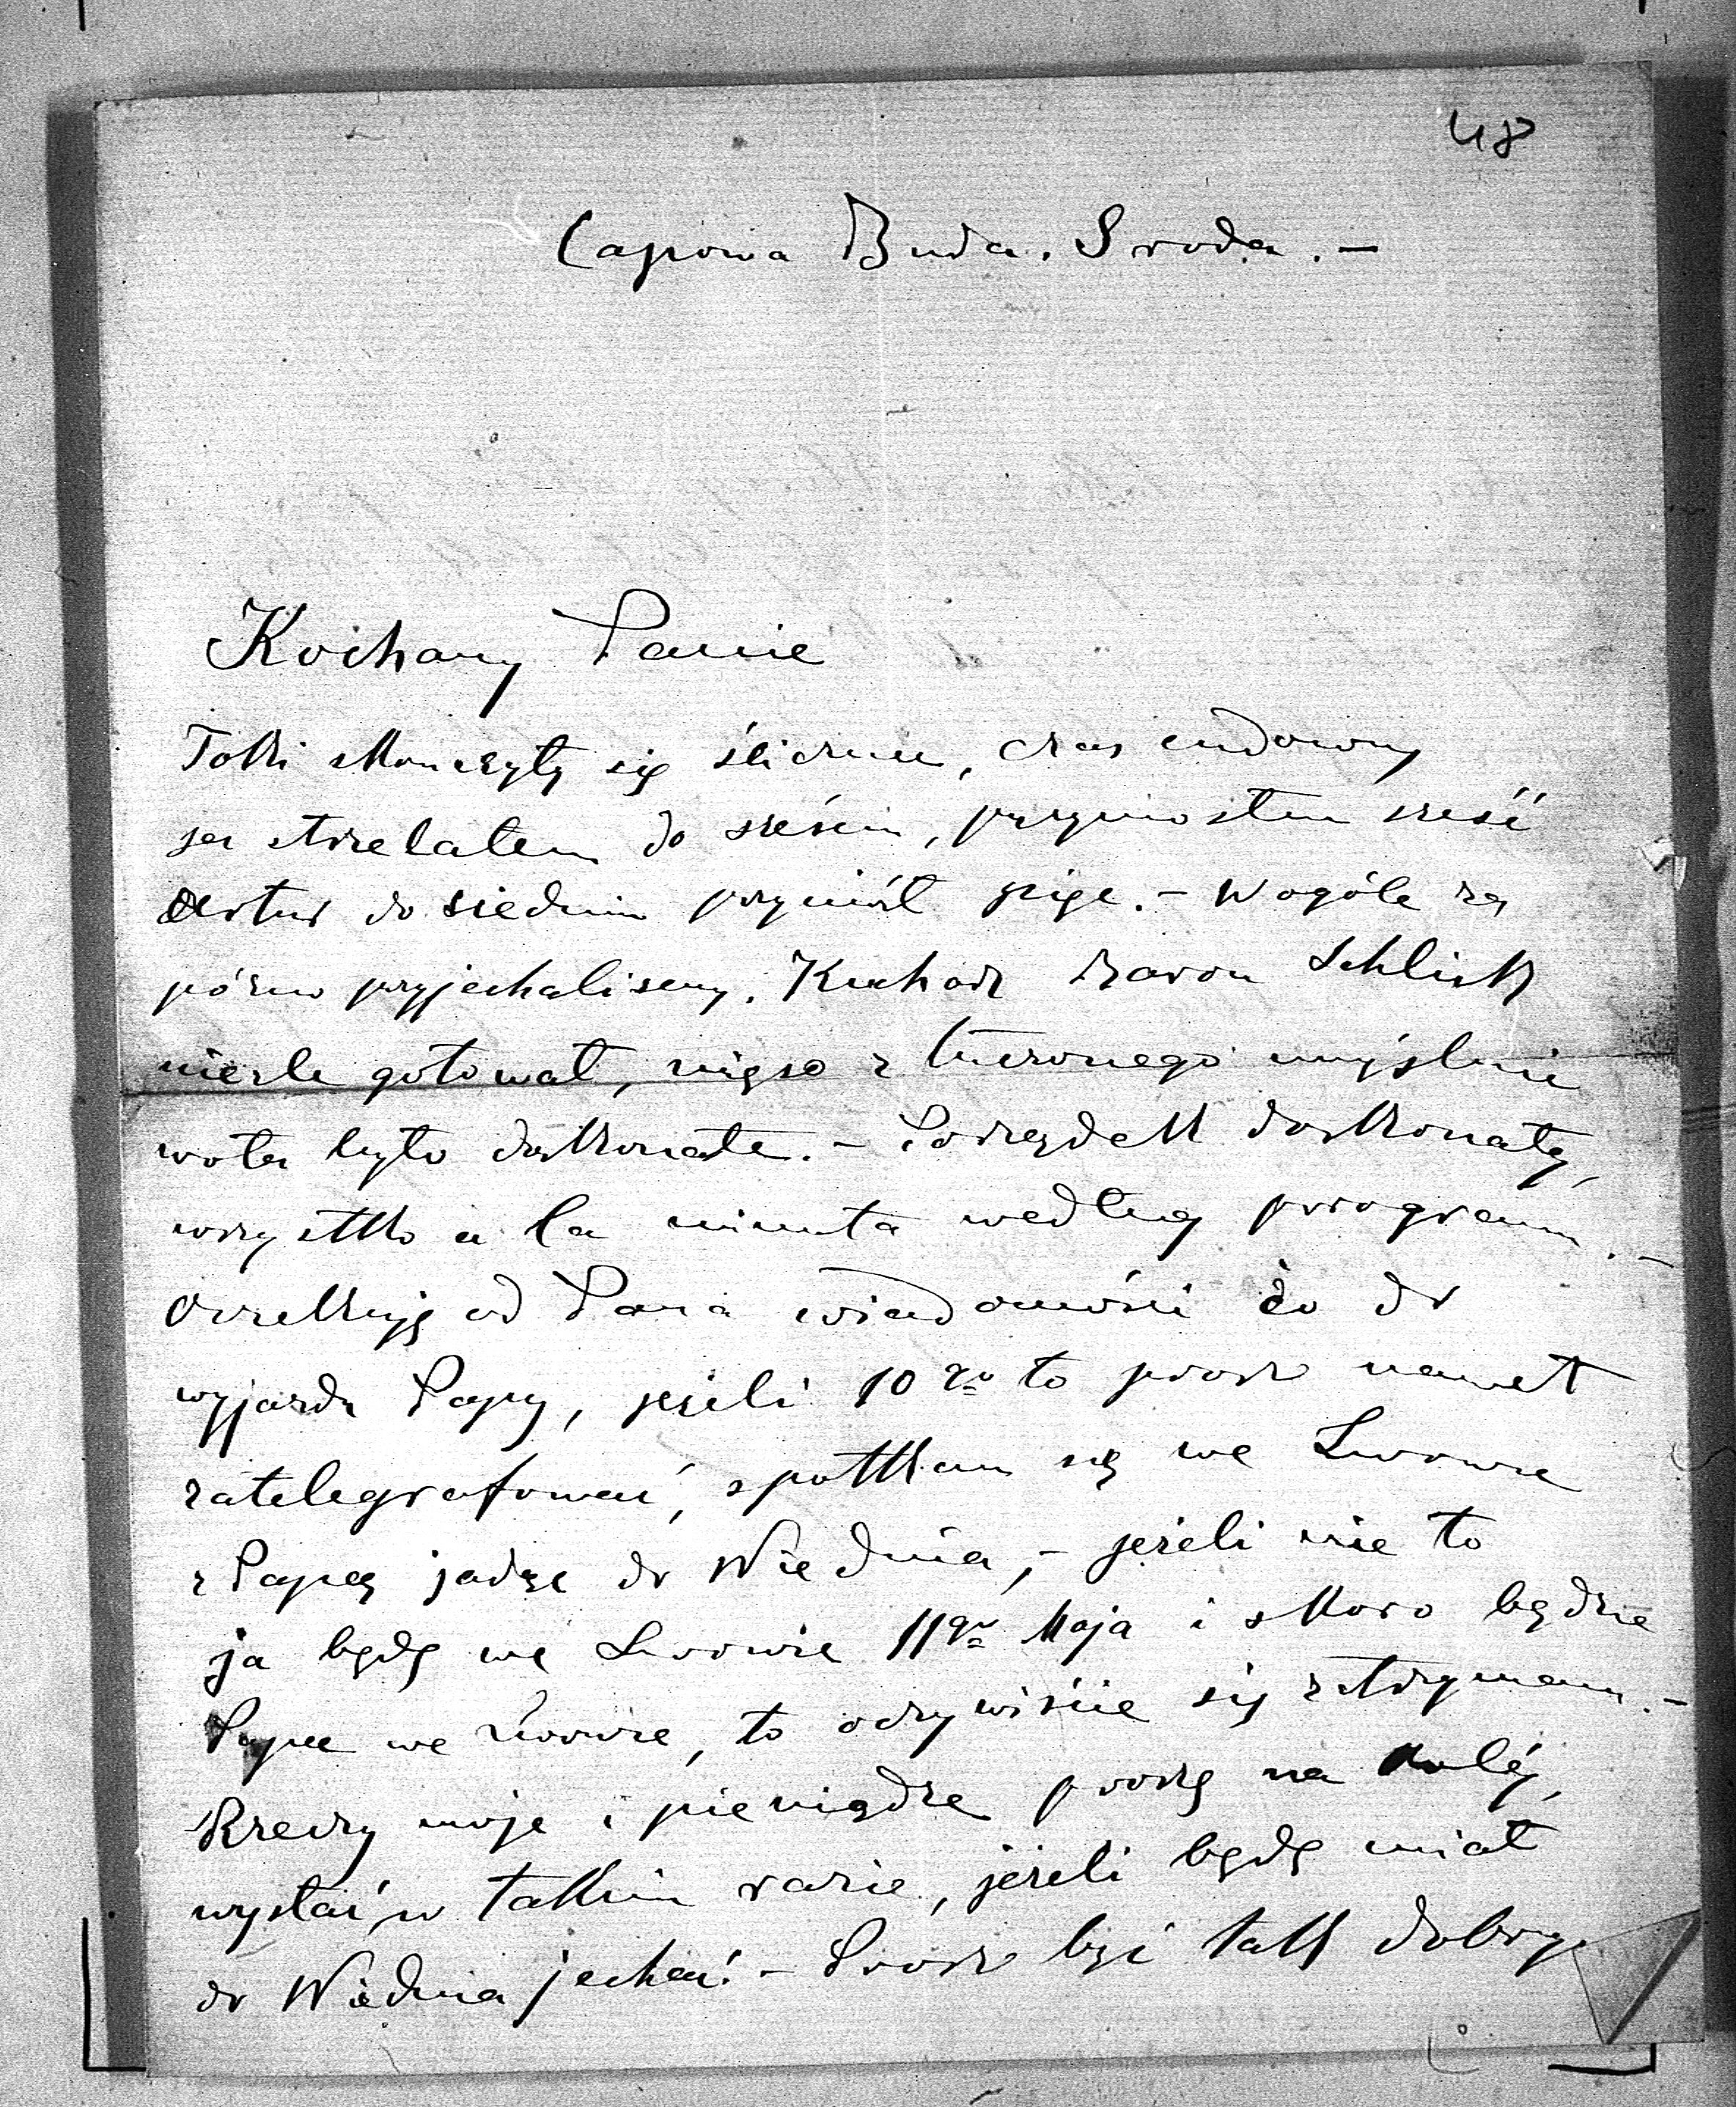 48
Capowa Buda. Sroda. —
Kochany Panie
Tokki skonczyły się ślicznie, czas cudowny
ja strzelałem do sześciu, przyniosłem sześć
Artur do siedmiu przyniósł pięc. — Wogóle za
późno przyjechalismy. Kucharz baron Schlick
nieźle gotował, mięso z tuczonego umyślnie
wołu było doskonałe. — Porządek doskonały,
wszystko a la minuta według program. —
Oczekuję od Pana wiadomości co do
wyjazdu Papy, jeżeli 10go to prosze nawet
zatelegrafować, spotkam się we Lwowie
z Papą jadąc do Wiednia, — jeżeli nie to
ja będę we Lwowie 11go Maja i skoro będzie
Papa we Lwowie, to oczywiście się zatrzymam. —
Rzeczy moje i pieniądze proszę na kolej,
wysłać, w takim razie, jeżeli będę miał
do Wiednia jechać. — Prosze być tak dobrym